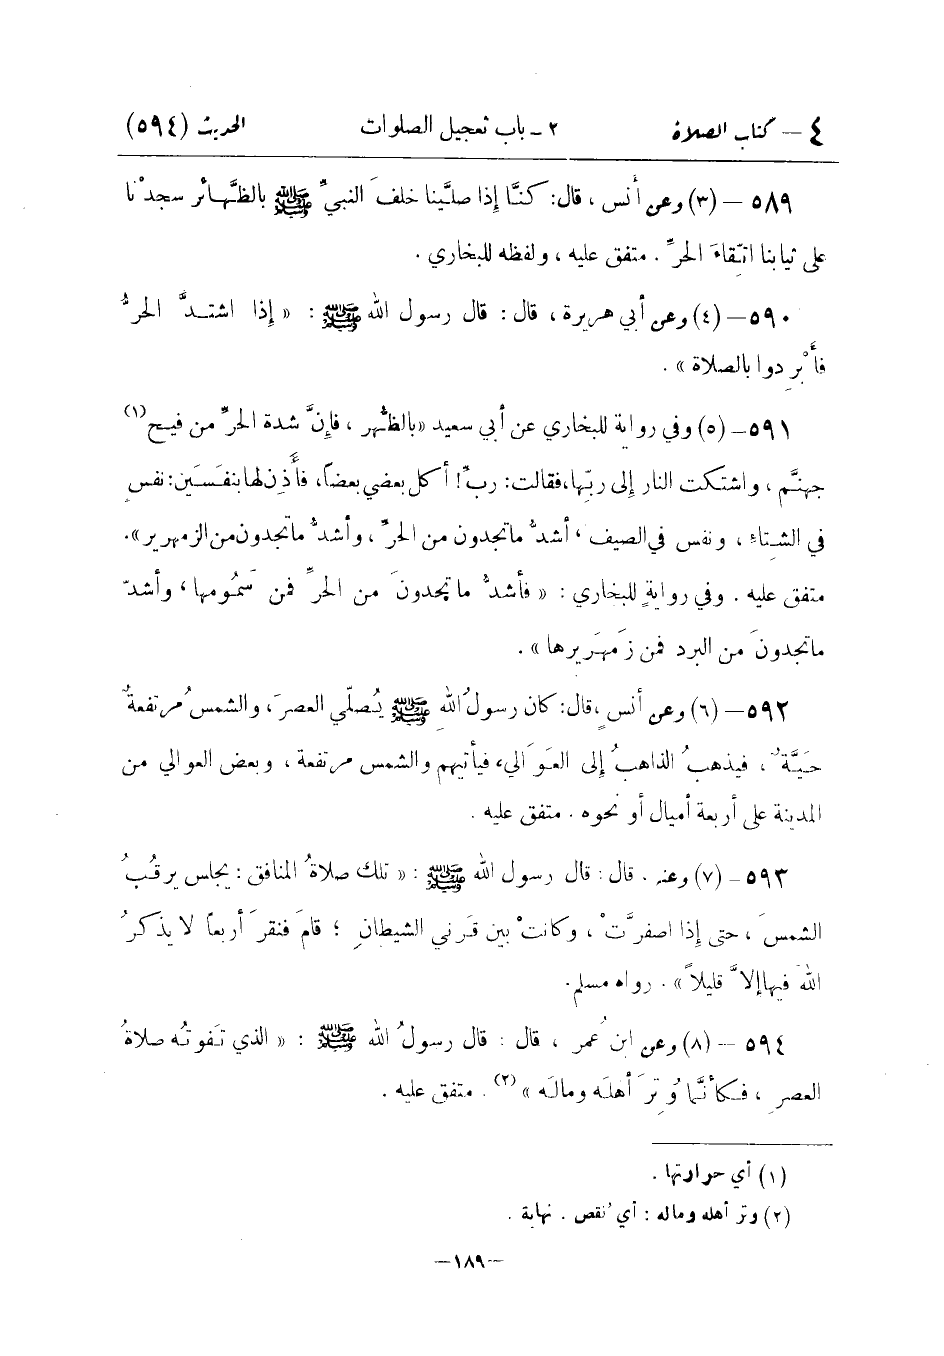 ٤ — كتاب الصلاة ٢ ـ باب تعجيل الصلوات الحديث (٥٩٤)
٥٨٩ — (٣) وعن أنس ، قال: كنَّا إذا صلَّينا خلفَ النبيِّ ﷺ بالظَّهائر سجدْنا
على ثيابنا اتّقاءَ الحرِّ . متفق عليه ، ولفظه للبخاري .
٥٩٠ — (٤) وعن أبي هريرة ، قال : قال رسول الله ﷺ : « إذا اشتدَّ الحرُّ
فأَبْرِدوا بالصلاة » .
٥٩١ — (٥) وفي رواية للبخاري عن أبي سعيد «بالظُّهر ، فإنَّ شدة الحرِّ من فيح(١)
جهنَّم ، واشتكت النار إلى ربِّها،فقالت: ربِّ! أكل بعضي بعضاً، فأَذِن لها بنفَسَين: نفسٍ
في الشتاءِ ، ونفس في الصيف ، أشدُّ ماتجدون من الحرِّ ، وأشدُّ ماتجدون من الزمهرير».
متفق عليه . وفي روايةٍ للبخاري : « فأشدُّ ماتجدونَ من الحرِّ فمن سَمُومها ، وأشدّ
ماتجدونَ من البرد فمن زَمهَريرها » .
٥٩٢ — (٦) وعن أنسٍ ،قال: كان رسولُ اللهِ ﷺ يُصلّي العصرَ ، والشمسُ مرتفعةٌ
حَيَّةٌ ، فيذهبُ الذاهبُ إلى العَوَالي، فيأتيهم والشمس مرتفعة ، وبعض العوالي من
المدينة على أربعة أميال أو نحوه . متفق عليه .
٥٩٣ ـ (٧) وعنه . قال : قال رسول الله ﷺ : « تلك صلاةُ المنافق : يجلس يرقُبُ
الشمسَ ، حتى إذا اصفرَّتْ ، وكانتْ بين قَرني الشيطانِ ؛ قامَ فنقرَ أربعاً لا يذكرُ
اللهَ فيها إلاَّ قليلاً » . رواه مسلم.
٥٩٤ — (٨) وعن ابن عُمر ، قال : قال رسولُ الله ﷺ : « الذي تَفوتُه صلاةُ
العصرِ ، فكأنَّما وُتِرَ أهلَه ومالَه » (٢) . متفق عليه .
(١) أي حرارتها .
(٢) وتر أهله وماله : أي نُقص . نهاية .
— ١٨٩ —